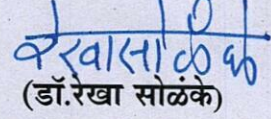 रेखा सोळंके
(डॉ.रेखा सोळंके)